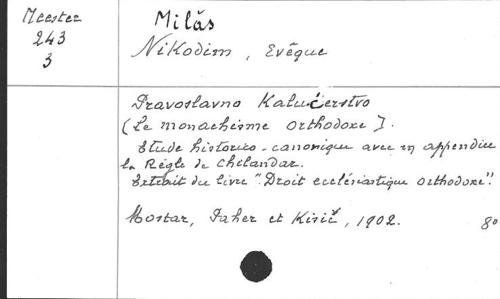 Meester
243
3
Milăs
Nikodim, Evêque
Pravoslavno Kalućerstvo
(Le monachisme orthodoxe).
Etude historico-canonique avec en appendice
la Règle de Chilandar.
Extrait du livre "Droit ecclésiastique orthodoxe".
Mostar, Paher et Kisić, 1902. 8°